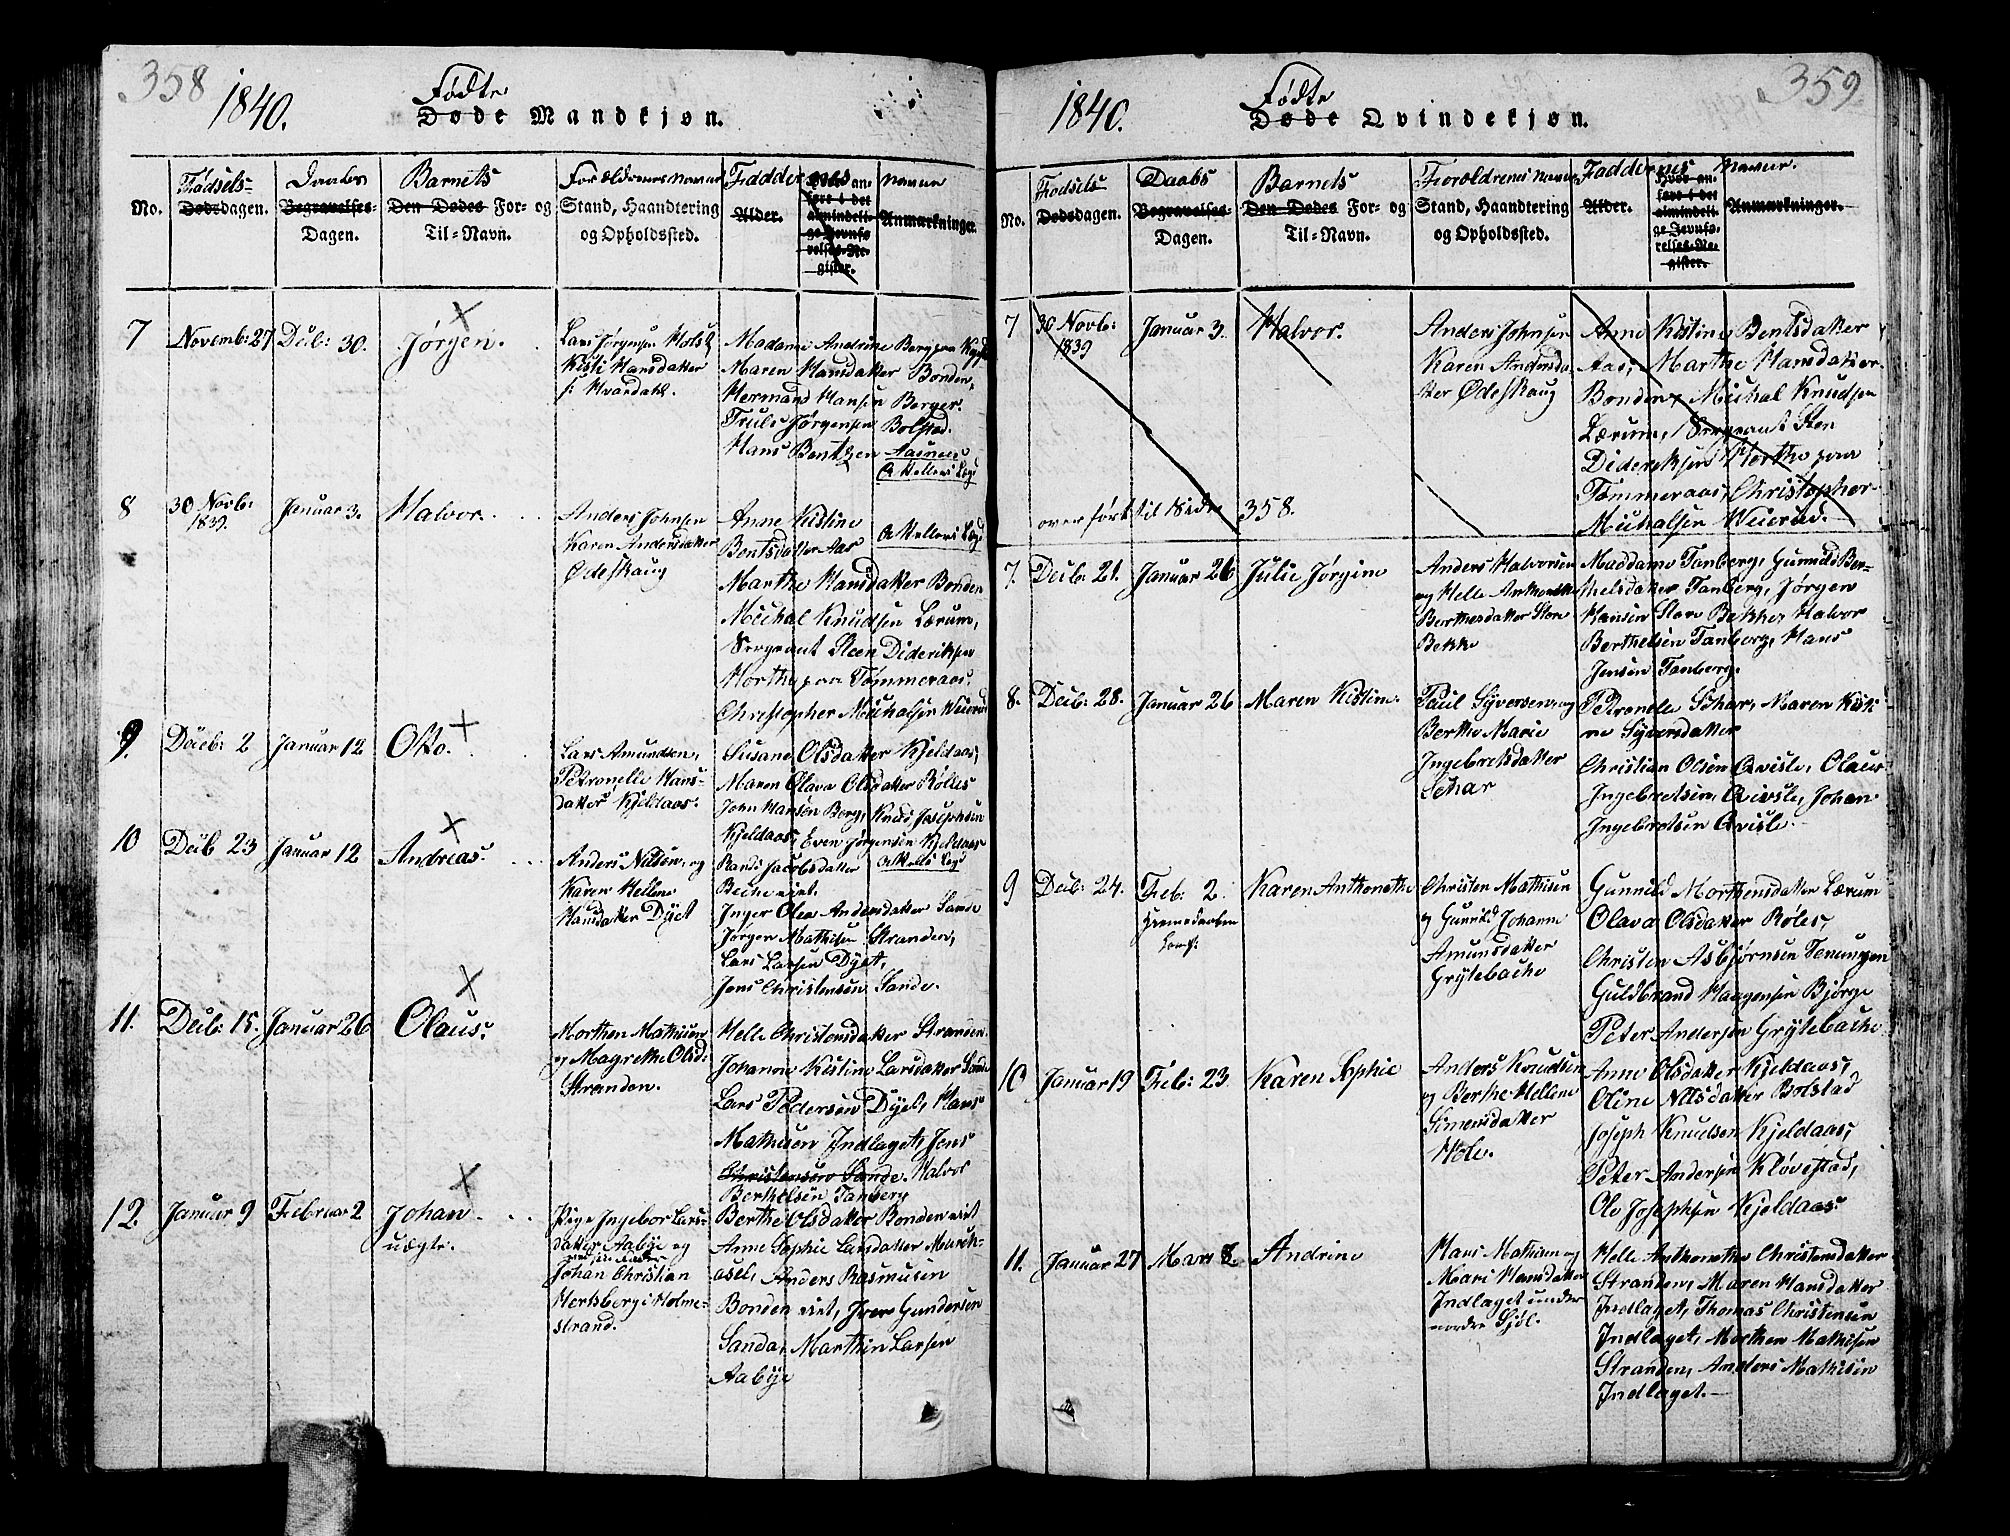 358
1840.
Fødte
Døde Mandkjøn.
No.
Fødsels-
Dødsdagen.
Daabs
Begravelses-
Dagen.
Barnets
Den Dødes For- og
Til-Navn.
Forældrenes Navne
Stand, Haandtering
og Opholdssted.
Faddernes Navne
Alder.
Hvor an-
føre i det
almindeli-
ge Jevnfø-
relses-Re-
gister.
Anmærkninger.
7
Novemb: 27
Decb: 30.
Jørgen.
Lars Jørgensen Holst
Kisti Hansdatter
Madame Andrine Berg paa
Maren Hansdatter Bonden,
Hermand Hansen Berger.
Truls Jørgensen Bolstad.
Hans Bentsen
8
30 Novb:
1839.
Januar 3.
Halvor.
Anders Johnsen
Karen Andersdatter
Ødeskaug
Anne Kistine
Bentsdatter Aas
Marthe Hansdatter Bonden
Michal Knudsen Lærum,
Sergeant Steen Dideriksen
Horthe paa Tømmeraas,
Christopher Michalsen Wiierud
9.
Decb: 2
Januar 12
Otto.
Lars Amundsen,
Petronelle Hans-
datter, Kjeldaas.
Susane Olsdatter Kjeldaas,
Maren Olava Olsdatter Rølles
John Hansen Berg, Knud Josephsen
Kjeldaas, Even Jørgensen Kjeldaas
10
Decb 23
Januar 12
Andreas.
Anders Nilsen og
Karen Hellene
Hansdatter Dyet
Randi Jacobsdatter
Inger Olea Andersdatter Sande
Jørgen Mathisen Stranden,
Lars Larsen Dyet,
Jens Christensen Sande.
11.
Decb: 15.
Januar 26
Olaus.
Morthen Mathisen
og Magrethe Olsd:
Stranden.
Helle Christensdatter Stranden
Johanne Kistine Larsdatter Sande
Lars Pedersen Dyet, Hans
Mathisen Indlaget, Jens
Christensen Sande. Halvor
Berthelsen Tanberg
12.
Januar 9
Februar 2
Johan
uægte.
Pige Ingebor Lars-
datter Aabye og
Johan Christian
Hertsberg i Holme-
strand.
Berthe Olsdatter Bonden
Anne Sophie Larsdatter
Anders Rasmusen
Bonden Iver Gundersen
Sanda, Marthin Larsen
Aabye
359
1840.
Fødte
Døde Qvindekjøn.
No.
Fødsels-
Dødsdagen.
Daabs
Begravelses-
Dagen.
Barnets
Den Dødes For- og
Til-Navn.
Forældrenes Navne
Stand, Haandtering
og Opholdssted.
Faddernes Navne.
Alder.
Hvor an-
føre i det
almindeli-
ge Jevnfø-
relses-Re-
gister.
Anmærkninger.
7
30 Novb:
1839
Januar 3.
Halvor.
Anders Johnsen
Karen Andersda-
tter Ødeskaug
Anne Kistine Bentsdatter
Aas, Marthe Hansdatter
Bonden, Michal Knudsen
Lærum, Sergeant Sten
Dideriksen Horthe paa
Tømmeraas, Christopher
Michalsen Wiierud.
overført til Side 358.
7.
Decb: 21.
Januar 26
Julie Jørgine
Anders Halvorsen
og Helle Anthonette
Berthesdatter Store
Bekke
Maddame Tanberg, Gunnild Ber-
thelsdatter Tanberg, Jørgen
Hansen Store Bekke, Halvor
Berthelsen Tanberg, Hans
Jensen Tanberg.
8.
Decb: 28.
Januar 26
Maren Kistine
Paul Syversen og
Berthe Marie
Ingebretsdatter
Schar
Petronelle Schar, Maren Kisti-
ne Syversdatter
Christian Olsen Qvisle, Olaus
Ingebretsen, Qvisle, Johan
Ingebretsen Qvisle.
9
Decb: 24.
Feb: 2.
Karen Anthonethe
Christen Mathisen
og Gunild Johanne
Amunsdatter
Grytebache
Gunnild Morthensdatter Lærum
Olava Olsdatter Røles,
Christen Asbjørnsen
Guldbrand Haagensen Bjørge
Peter Andersen Grytebache
10
Januar 19
Feb: 23
Karen Sophie
Anders Knudsen
og Berthe Hellene
Simensdatter
Hole.
Anne Olsdatter Kjeldaas,
Oline Nilsdatter Bolstad
Joseph Knudsen Kjeldaas,
Peter Andersen Kløvestad,
Ole Josephsen Kjeldaas.
11.
Januar 27
Mars 8.
Andrine
Hans Mathisen og
Mari Hansdatter
Indlaget under
nordre Gjøl.
Helle Anthonethe Christensdatter
Stranden, Maren Hansdatter
Indlaget, Thomas Christensen
Indlaget, Morthen Mathisen
Stranden, Anders Mathisen
Indlaget.